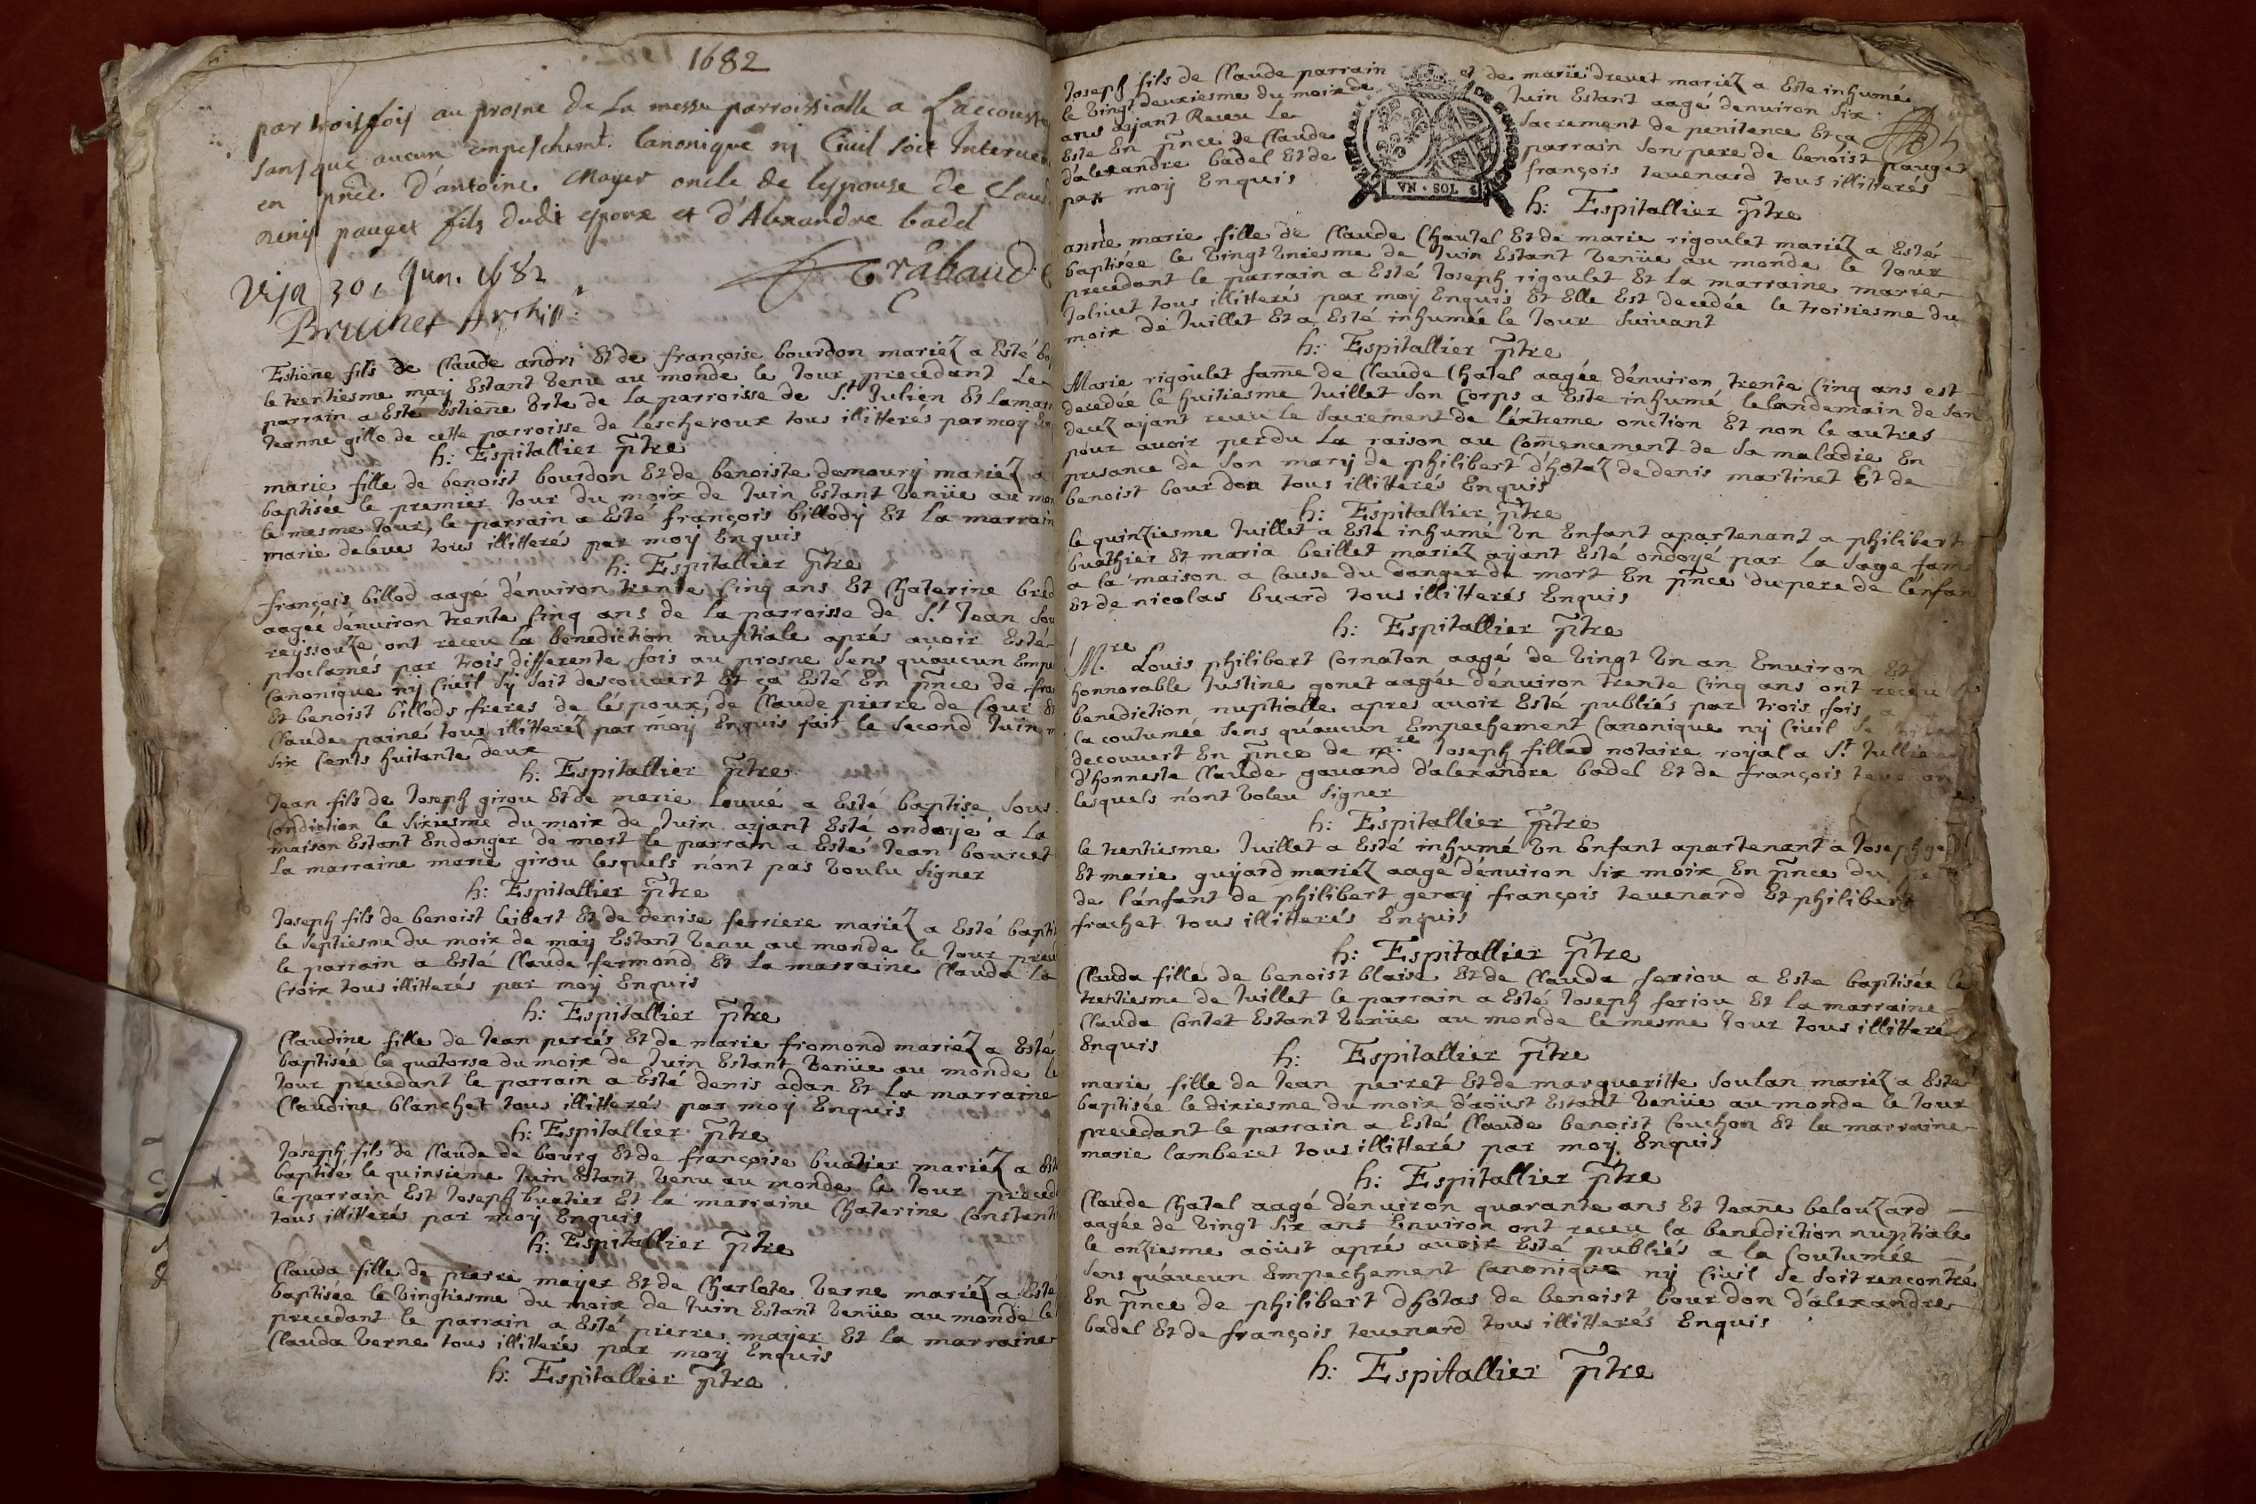 1682
par trois fois au prosne de la messe parroissialle a Laccoustu
sans que aucun empeschemt. Canonique nj Civil soit Interuen
en pnce. d'antoine Mayer oncle de lespouse de Claude
denis pauget fils dudit espoux et d'Alexandre badel
Trabaud C
Visa 30, Jun. 1682
Brunet Archip:
Estiene fils de Claude andri Et de françoise bourdon mariéz a Esté ba
le trentiesme maij Estant venu au monde le Jour precedant Le
parrain a Esté Estiene de la parroisse de St. Julien Et Lamar
Jeanne gillo de cette parroisse de Lescheroux tous illitterés par moy En
h: Espitallier ptre
marie fille de benoist bourdon Et de benoiste demourij mariéz a
baptisée le premier Jour du moix de Juin Estant venüe au mon
le mesme Jour, le parrain a Esté françois billody Et La marrain
marie tous illitterés par moy Enquis
h: Espitallier ptre
françois billod aagé d'environ trente Cinq ans Et Chaterine bred
aagée denviron trente Cinq ans de la parroisse de St Jean Sou
reijssouze ont receu la benediction nuptiale aprés avoir Esté
proclamés par trois differente fois au prosne sens qu'aucun Empe
Canonique nij Civil sij soit descouvert Et ça Esté En pnce de fra
Et benoist billods freres de l'éspoux, de Claude pierre de Cour Et
Claude paine tous illitteréz par moij Enquis fait le second Juin m
six Cents huitante deux
h: Espitallier ptre
Jean fils de Joseph girou Et de marie Louvé a Esté baptise Sous
Condiction le Sixiesme du moix de Juin aijant Esté ondoyé a La
maison Estant En danger de mort le parrain a Esté Jean bourcet
La marraine marie girou lesquels n'ont pas voulu signer
h: Espitallier ptre
Joseph fils de benoist leibert Et de denise ferriere mariéz a Esté bapti
le septiesme du moix de maij Estant venu au monde le Jour prece
le parrain a Esté Claude fermond Et La marraine Clauda La
Croix tous illitterés par moy Enquis
h: Espitallier ptre
Claudine fille de Jean perrés Et de marie fromond mariéz a Esté
baptisée le quatorse du moix de Juin Estant venüe au monde le
Jour precedant le parrain a Esté denis adan Et La marraine
Claudine blanchet tous illitterés par moy Enquis
h: Espitallier ptre
Joseph fils de Claude de bourg Et de françoise buatier mariéz a Est
baptisé le quinsieme Juin Estant venu au monde le Jour preced
le parrain Est Joseph buatier Et la marraine Chaterine Constant
tous illitterés par moy Enquis
h: Espitallier ptre
Clauda fille de pierre maijer Et de Charlote verne mariéz a Este
baptisée le vingtiesme du moix de Juin Estant venüe au monde le
precedant le parrain a Esté pierre maijer Et La marraine
Clauda verne tous illitterés par moy Enquis
h: Espitallier ptre
Joseph fils de Claude parrain et de marie drevet mariéz a Este inhumé
le vingtdeuxiesme du moix de Juin Estant aagé denviron Six
ans aijant Receu Le sacrement de penitence Et ça
Este En pnce de Claude parrain son pere de benoist pauget
d'alexandre badel Et de françois tevenard tous illitterés
par moy Enquis
VN · SOL
h: Espitallier ptre
anne marie fille de Claude Chautel Et de marie rigoulet mariéz a Esté
baptisée le vingt uniesme de Juin Estant venüe au monde le Jour
precedant le parrain a Esté Joseph rigoulet Et La marraine marie
Jolivet tous illitterés par moy Enquis Et Elle Est decedée le troisiesme du
moix de Juillet Et a Esté inhumée le Jour Suivant
h: Espitallier ptre
Marie rigoulet fame de Claude Chatel aagée d'environ trente Cinq ans est
decedée le huitiesme Juillet Son Corps a Este inhumé le landemain de Son
deuz aijant receu le Sacrement de L'éxtreme onction Et non le autres
pour avoir perdu La raison au Comencement de Sa maladie En
presance de Son marij de philibert d'hotaz de denis martinet Et de
benoist bourdon tous illitterés Enquis
h: Espitallier ptre
le quinziesme Juillet a Este inhumé un Enfant apartenant a philibert
buathier Et maria beillet mariéz aijant Esté ondoijé par la sage fam
a la maison a Cause du danger de mort En pnce du pere de L'énfan
Et de nicolas buard tous illitterés Enquis
h: Espitallier ptre
M.re Louis philibert Cornaton aagé de vingt Un an Environ Et
honnorable Justine gonet aagée d'énviron trente Cinq ans ont receu La
benediction nuptialle apres avoir Esté publiés par trois fois a
la coutumée Sens qu'aucun Empechement Canonique nij Civil Se
decouvert En pnce de M.re Joseph fillod notaire royal a St Jullien
d'honneste Claude gavand d'alexandre badel Et de françois tevenar
lesquels n'ont voleu signer
h: Espitallier ptre
le trentiesme Juillet a Esté inhumé Un Enfant apartenant a Joseph
Et marie guijard mariéz aagé d'énviron Six moix En pnce du pe
de l'ánfant de philibert geraij françois tevenard Et philibert
frachet tous illitterés Enquis
h: Espitallier ptre
Clauda fille de benoist blaise Et de Clauda feriou a Este baptisée le
trentiesme de Juillet le parrain a Esté Joseph feriou Et La marraine
Clauda Contet Estant venüe au monde le mesme Jour tous illitteré
Enquis
h: Espitallier ptre
marie fille de Jean perret Et de margueritte Soulan mariéz a Esté
baptisée le dixiesme du moix d'aoüst Estant venüe au monde le Jour
precedant le parrain a Esté Claude benoist Couchon Et la marraine
marie lamberet tous illitterés par moy Enquis
h: Espitallier ptre
Claude Chatel aagé d'énviron quarante ans Et Jeane belouzard
aagée de vingt Six ans Environ ont receu la benediction nuptiale
le onziesme aoüst aprés avoir Esté publiés a la Coutumée
Sens qu'aucun Empechement Canonique nij Civil Se Soit rencontré
En pnce de philibert dhotas de benoist bourdon d'alexandre
badel Et de françois tevenard tous illitterés Enquis
h: Espitallier ptre